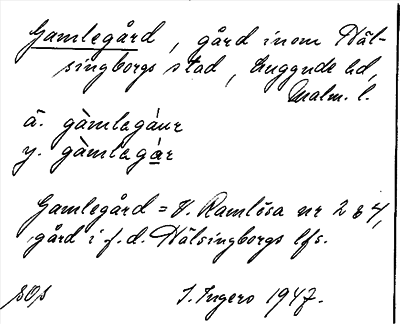 Gamlegård, gård inom Häl-
singborgs stad, Luggude hd,
Malm. l.
ä. gàmlagáur
y. gàmlagár
Gamlegård = V. Ramlösa nr 2 & 4,
gård i f. d. Hälsingborgs lfs.
SOS I. Ingers 1947.